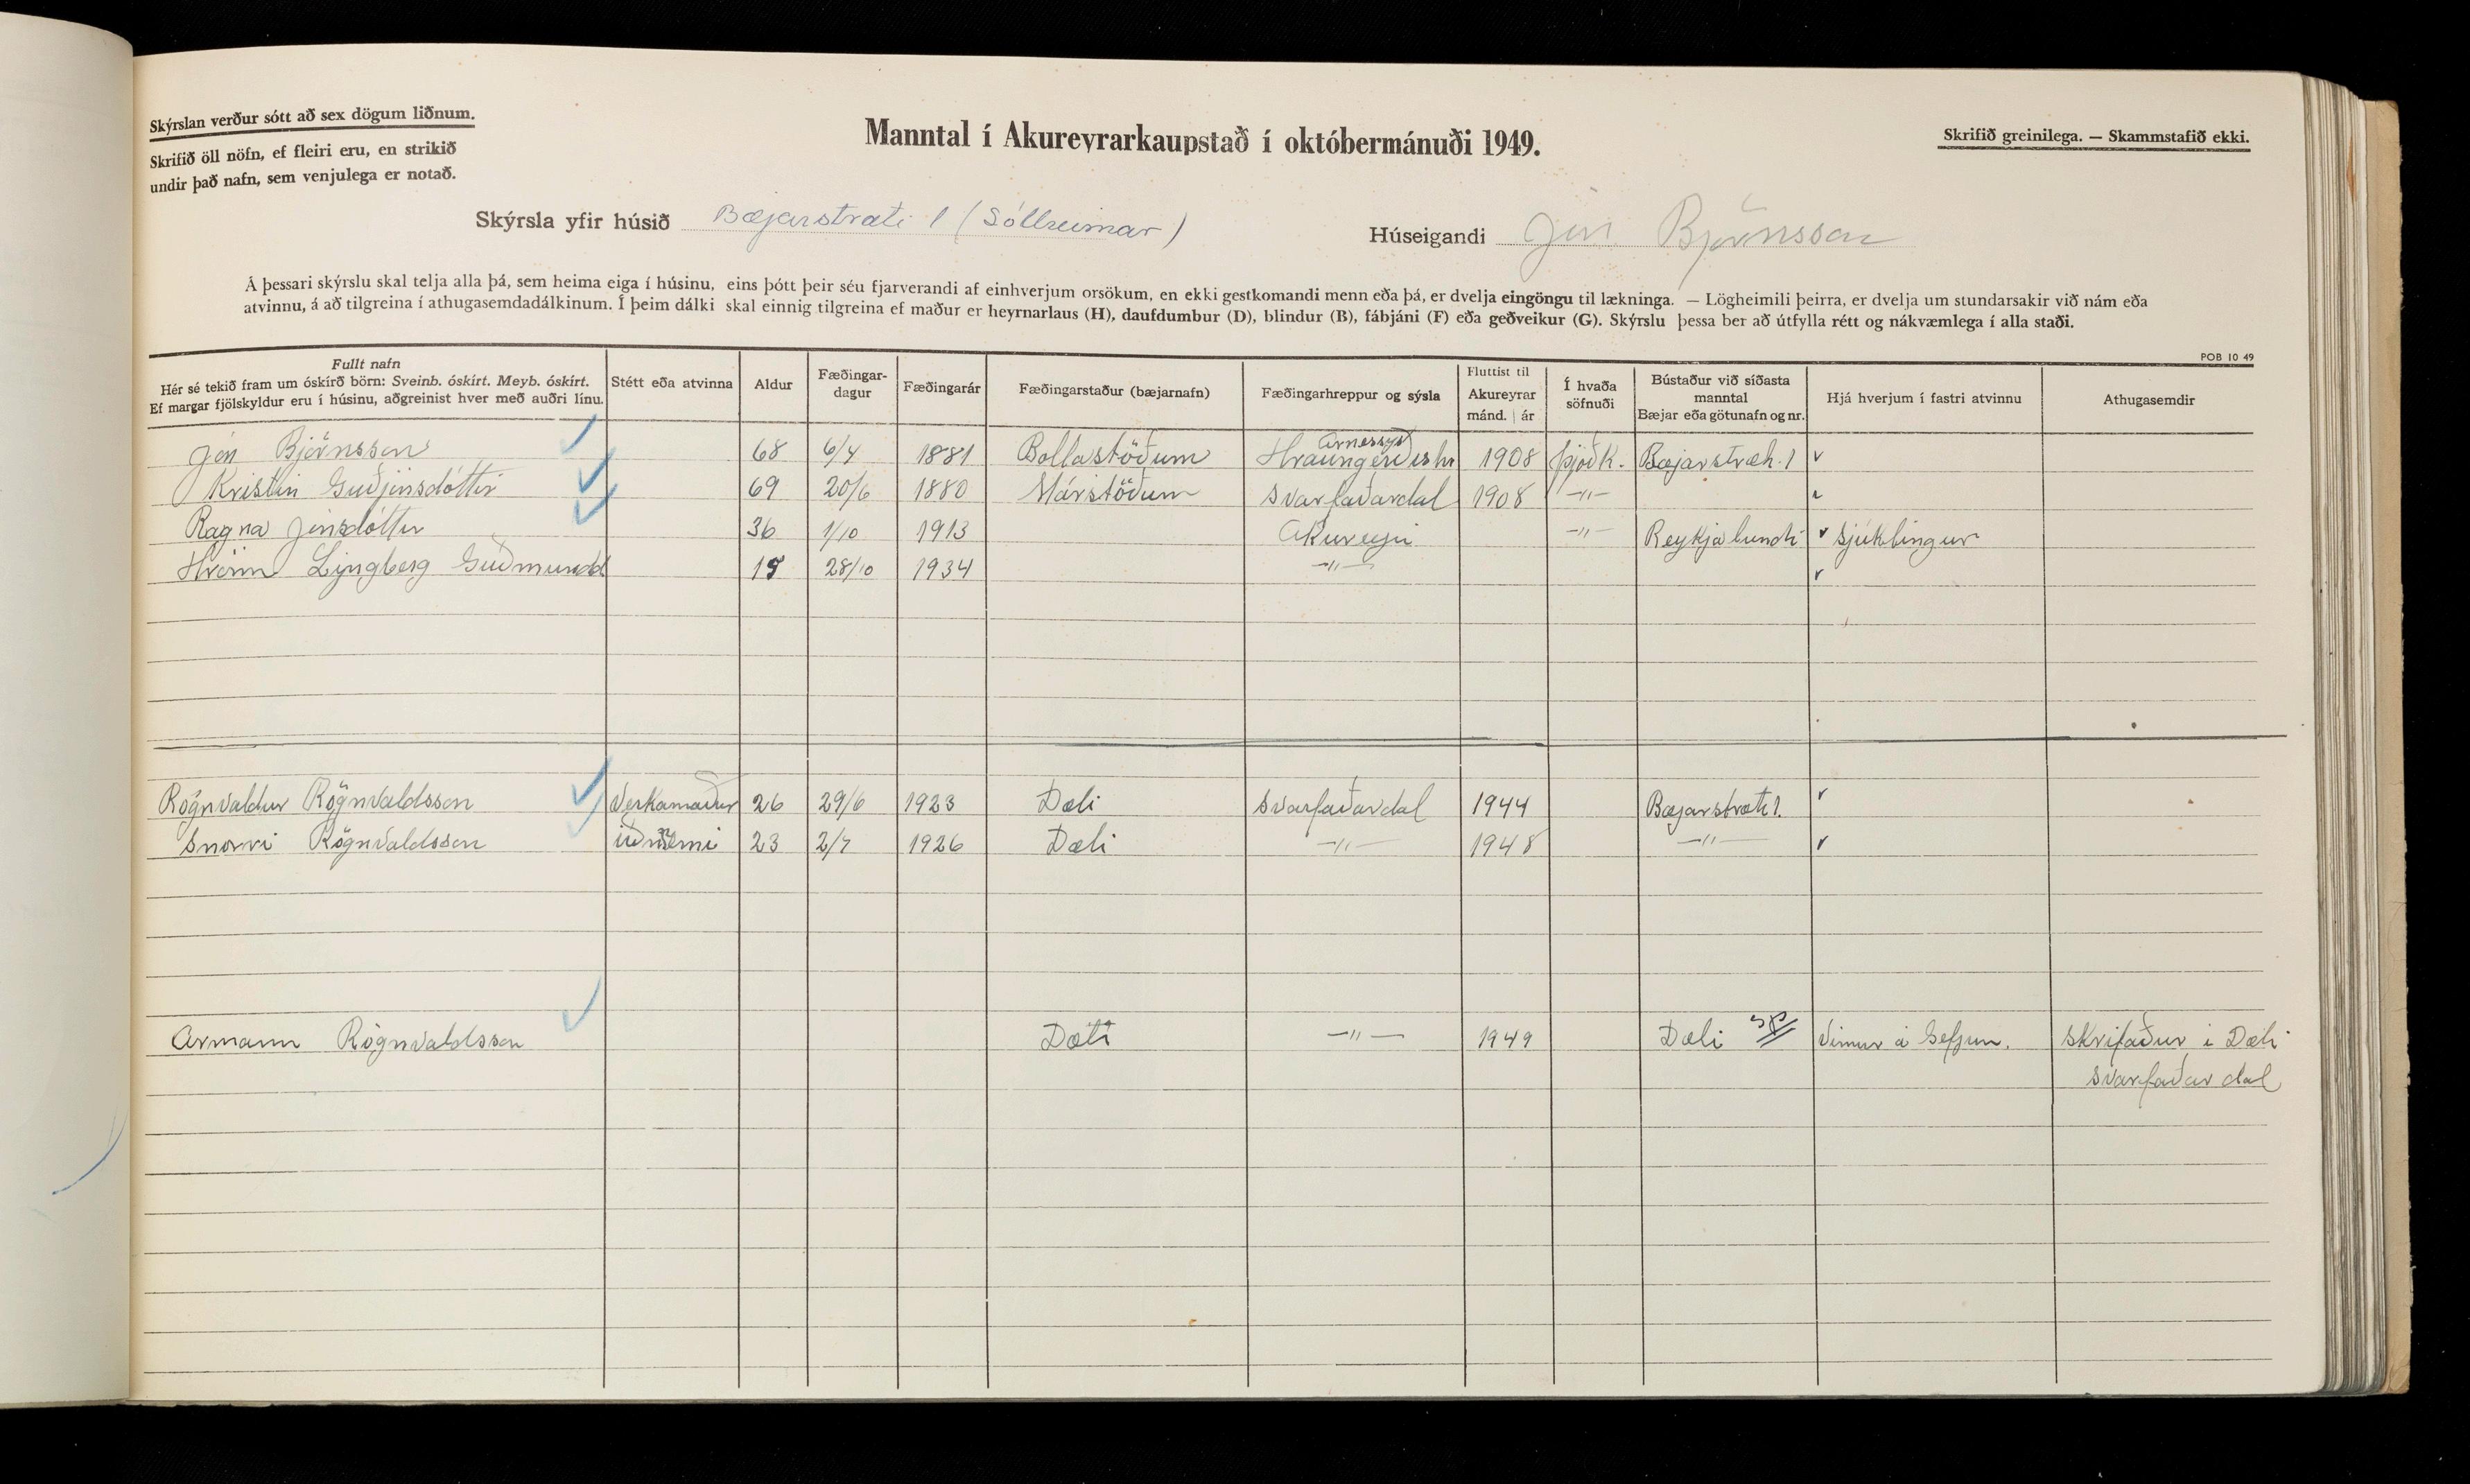 Skýrslan verður sótt að sex dögum liðnum.
Skrifið öll nöfn, ef fleiri eru, en strikið
undir það nafn, sem venjulega er notað.
Manntal í Akureyrarkaupstað í októbermánuði 1949.
Skrifið greinilega. — Skammstafið ekki.
Skýrsla yfir húsið Bæjarstræti 1 (Sólheimar)
Húseigandi Jón Björnsson
Á þessari skýrslu skal telja alla þá, sem heima eiga í húsinu, eins þótt þeir séu fjarverandi af einhverjum orsökum, en ekki gestkomandi menn eða þá, er dvelja eingöngu til lækninga. — Lögheimili þeirra, er dvelja um stundarsakir við nám eða
atvinnu, á að tilgreina í athugasemdadálkinum. Í þeim dálki skal einnig tilgreina ef maður er heyrnarlaus (H), daufdumbur (D), blindur (B), fábjáni (F) eða geðveikur (G). Skýrslu þessa ber að útfylla rétt og nákvæmlega í alla staði.
POB 10 49
Fullt nafn
Hér sé tekið fram um óskírð börn: Sveinb. óskírt. Meyb. óskírt.
Ef margar fjölskyldur eru í húsinu, aðgreinist hver með auðri línu.
Stétt eða atvinna
Aldur
Fæðingar-
dagur
Fæðingarár
Fæðingarstaður (bæjarnafn)
Fæðingarhreppur og sýsla
Fluttist til
Akureyrar
mánd. | ár
Í hvaða
söfnuði
Bústaður við síðasta
manntal
Bæjar eða götunafn og nr.
Hjá hverjum í fastri atvinnu
Athugasemdir
Jón Björnsson 68 6/4 1881 Bollastöðum Hraungerðishr Árnessýs 1908 þjóðk. Bæjarstræti 1
Kristín Guðjónsdóttir 69 20/6 1880 Márstöðum Svarfaðardal 1908 —"—
Ragna Jónsdóttir 36 1/10 1913 Akureyri —"— Reykjalundi sjúklingur
Hrönn Lyngberg Guðmundd 15 28/10 1934 —"—
Rögnvaldur Rögnvaldsson Verkamaður 26 29/6 1923 Dæli Svarfaðardal 1944 Bæjarstræti 1.
Snorri Rögnvaldsson iðnnemi 23 2/7 1926 Dæli —"— 1948 —"—
Ármann Rögnvaldsson Dæli —"— 1949 Dæli Vinnur á Gefjun. Skrifaður í Dæli
Svarfaðardal